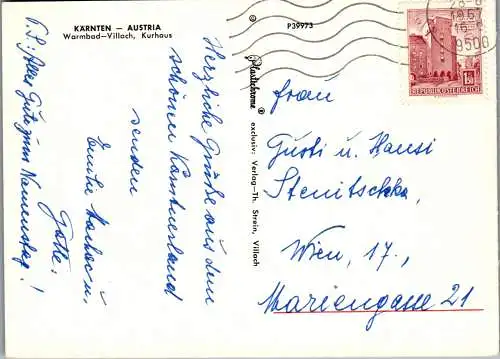 KÄRNTEN — AUSTRIA
Warmbad—Villach, Kurhaus
© P39973
Herzliche Grüße aus dem
schönen Kärntnerland
senden
Emilie u.
Gatte.
P.S. Alles Gute zum Namenstag!
Plastichrome ®
exclusiv: Verlag—Th. Strein, Villach
REPUBLIK ÖSTERREICH
9500
Frau
Gusti u. Hansi
Stenitschka,
Wien, 17.,
Mariengasse 21